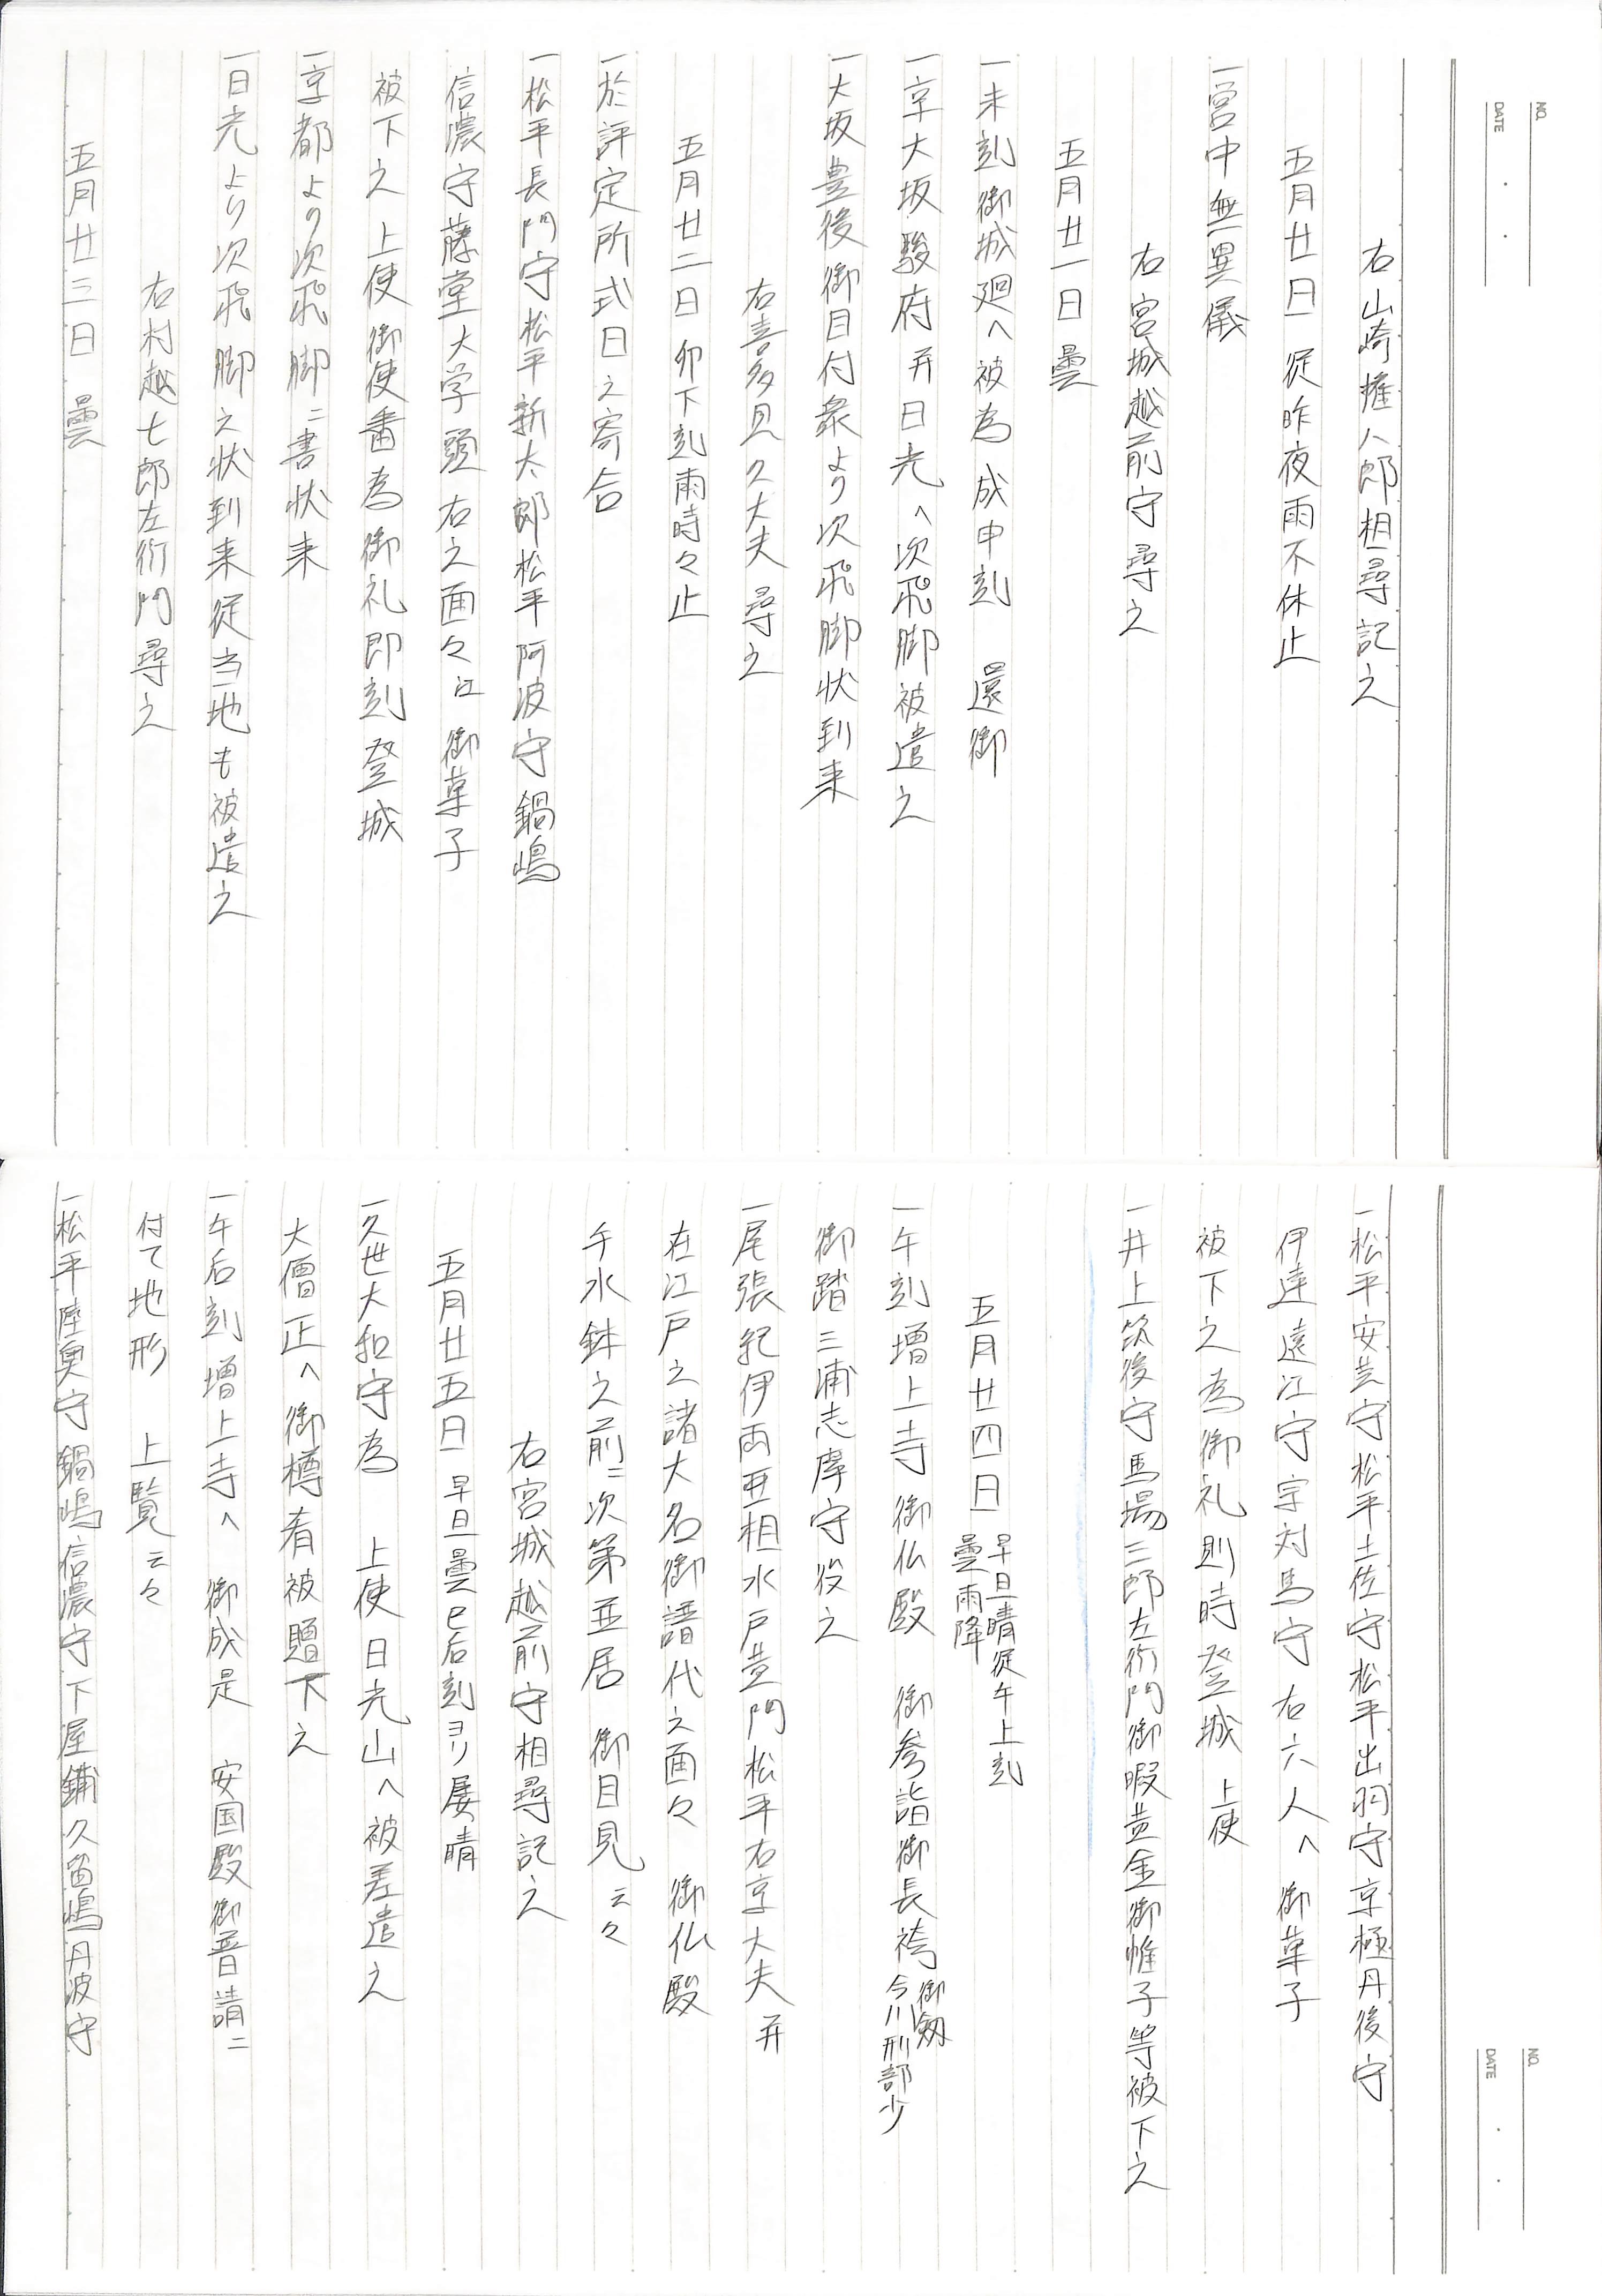 NO.
DATE
右山崎権八郎相尋記之
五月廿日 従昨夜雨不休止
一宮中無異儀
右宮城越前守尋之
五月廿一日曇
一未刻御城廻へ被為成申刻 還御
一京大坂駿府并日光へ次飛脚被遣之
一大坂豊後御目付衆より次飛脚状到来
右喜多見久大夫尋之
五月廿二日卯下刻雨時々止
一於評定所式日之寄合
一松平長門守松平新太郎松平阿波守鍋嶋
信濃守藤堂大学頭右之面々江 御菓子
被下之 上使御使番為御礼即刻登城
一京都より次飛脚ニ書状来
一日光より次飛脚之状到来従当地も被遣之
右村越七郎左衛門尋之
五月廿三日 曇
NO.
DATE
一松平安芸守松平土佐守松平出羽守京極丹後守
伊達遠江守宗対馬守右六人へ 御菓子
被下之為御礼則時登城 上使
一井上筑後守馬場三郎左衛門御暇黄金御帷子等被下之
五月廿四日 早旦晴従午上刻曇雨降
一午刻増上寺御仏殿 御参詣御長袴 御剱今川刑部少
御踏三浦志摩守役之
一尾張紀伊両亜相水戸黄門松平右京大夫并
在江戸之諸大名御譜代之面々 御仏殿
手水鉢之前ニ次第並居 御目見云々
右宮城越前守相尋記之
五月廿五日 早旦曇巳后刻ヨリ属晴
一久世大和守為 上使日光山へ被差遣之
大僧正へ御樽肴被贈下之
一午后刻増上寺へ 御成是 安国殿御普請ニ
付て地形 上覧云々
一松平陸奥守鍋嶋信濃守下屋鋪久留嶋丹波守